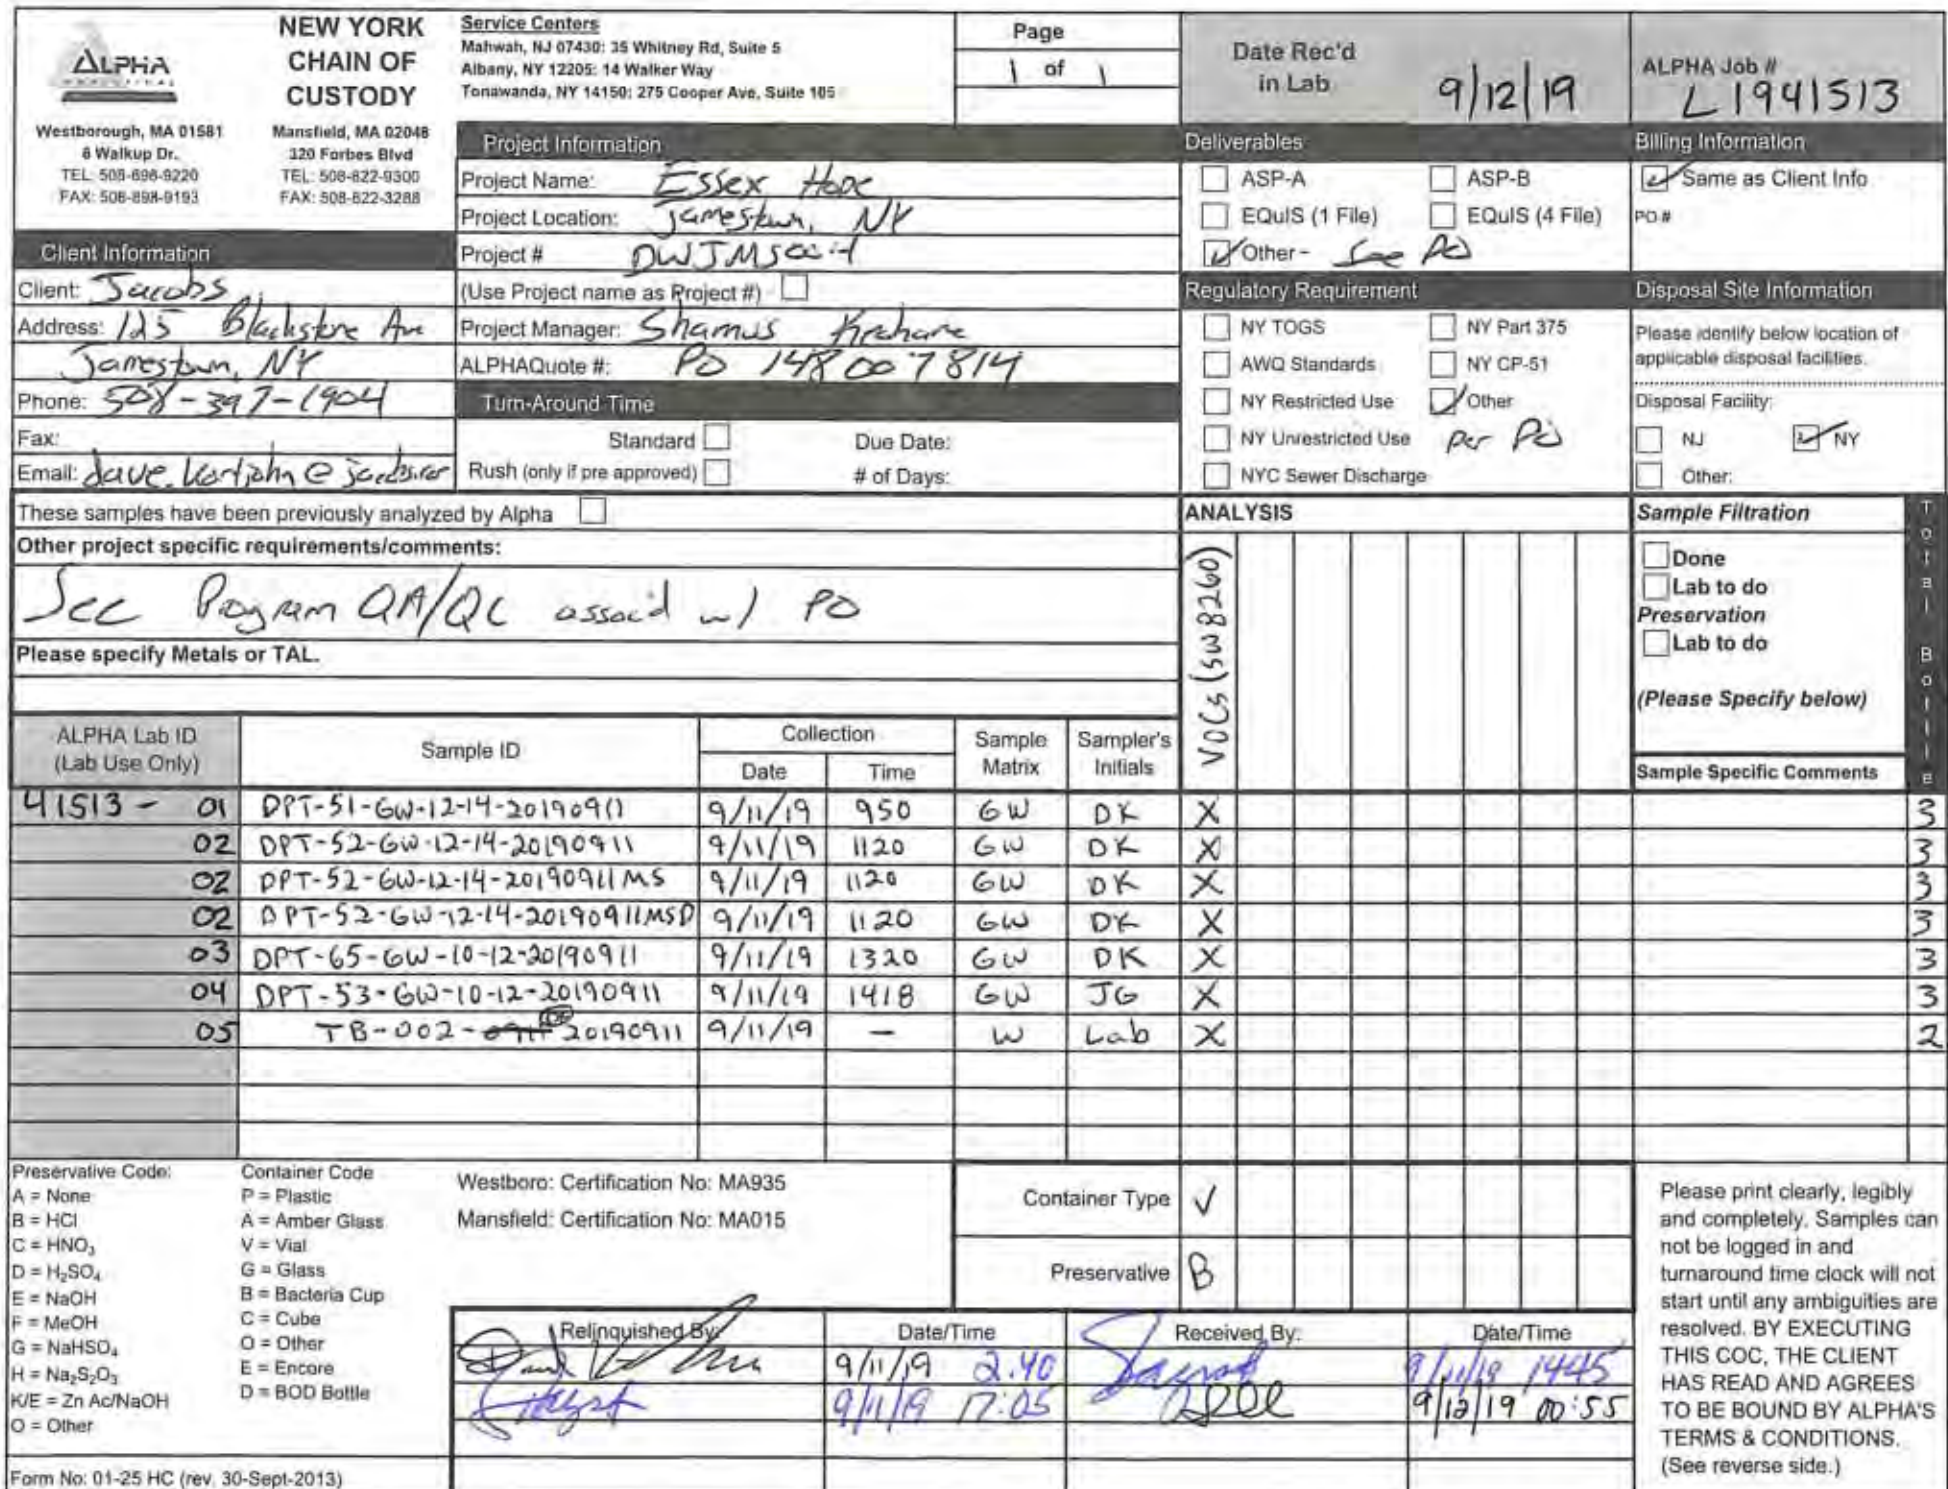 ALPHA
ANALYTICAL
NEW YORK
CHAIN OF
CUSTODY
Westborough, MA 01581
8 Walkup Dr.
TEL: 508-898-9220
FAX: 508-898-9193
Mansfield, MA 02048
320 Forbes Blvd
TEL: 508-822-9300
FAX: 508-822-3288
Service Centers
Mahwah, NJ 07430: 35 Whitney Rd, Suite 5
Albany, NY 12205: 14 Walker Way
Tonawanda, NY 14150: 275 Cooper Ave, Suite 105
Page
1 of 1
Date Rec'd
in Lab 9/12/19
ALPHA Job #
L1941513
Client Information
Client: Jacobs
Address: 125 Blackstone Ave
Jamestown, NY
Phone: 508-397-1904
Fax:
Email:
Project Information
Project Name: Essex Hope
Project Location: Jamestown, NY
Project #
(Use Project name as Project #)
Project Manager: Shamus
ALPHAQuote #: PO 1480007814
Turn-Around Time
Standard Due Date:
Rush (only if pre approved) # of Days:
Deliverables
ASP-A ASP-B
EQuIS (1 File) EQuIS (4 File)
Other - See PO
Regulatory Requirement
NY TOGS NY Part 375
AWQ Standards NY CP-51
NY Restricted Use Other
NY Unrestricted Use Per PO
NYC Sewer Discharge
Billing Information
Same as Client Info
PO #
Disposal Site Information
Please identify below location of
applicable disposal facilities.
Disposal Facility:
NJ NY
Other:
These samples have been previously analyzed by Alpha
Other project specific requirements/comments:
See Program QA/QC assoc'd w/ PO
Please specify Metals or TAL.
ANALYSIS
VOCs (SW8260)
Sample Filtration
Done
Lab to do
Preservation
Lab to do
(Please Specify below)
Sample Specific Comments
Total Bottle
ALPHA Lab ID
(Lab Use Only)
Sample ID
Collection
Date Time
Sample
Matrix
Sampler's
Initials
41513 - 01 DPT-51-GW-12-14-20190911 9/11/19 950 GW DK X 3
02 DPT-52-GW-12-14-20190911 9/11/19 1120 GW DK X 3
02 DPT-52-GW-12-14-20190911MS 9/11/19 1120 GW DK X 3
02 DPT-52-GW-12-14-20190911MSD 9/11/19 1120 GW DK X 3
03 DPT-65-GW-10-12-20190911 9/11/19 1320 GW DK X 3
04 DPT-53-GW-10-12-20190911 9/11/19 1418 GW JG X 3
05 TB-002-20190911 9/11/19 — W Lab X 2
Preservative Code:
A = None
B = HCl
C = HNO₃
D = H₂SO₄
E = NaOH
F = MeOH
G = NaHSO₄
H = Na₂S₂O₃
K/E = Zn Ac/NaOH
O = Other
Container Code
P = Plastic
A = Amber Glass
V = Vial
G = Glass
B = Bacteria Cup
C = Cube
O = Other
E = Encore
D = BOD Bottle
Westboro: Certification No: MA935
Mansfield: Certification No: MA015
Container Type V
Preservative B
Relinquished By: Date/Time Received By: Date/Time
9/11/19 2:40 9/11/19 1445
9/11/19 17:05 9/12/19 00:55
Please print clearly, legibly
and completely. Samples can
not be logged in and
turnaround time clock will not
start until any ambiguities are
resolved. BY EXECUTING
THIS COC, THE CLIENT
HAS READ AND AGREES
TO BE BOUND BY ALPHA'S
TERMS & CONDITIONS.
(See reverse side.)
Form No: 01-25 HC (rev. 30-Sept-2013)